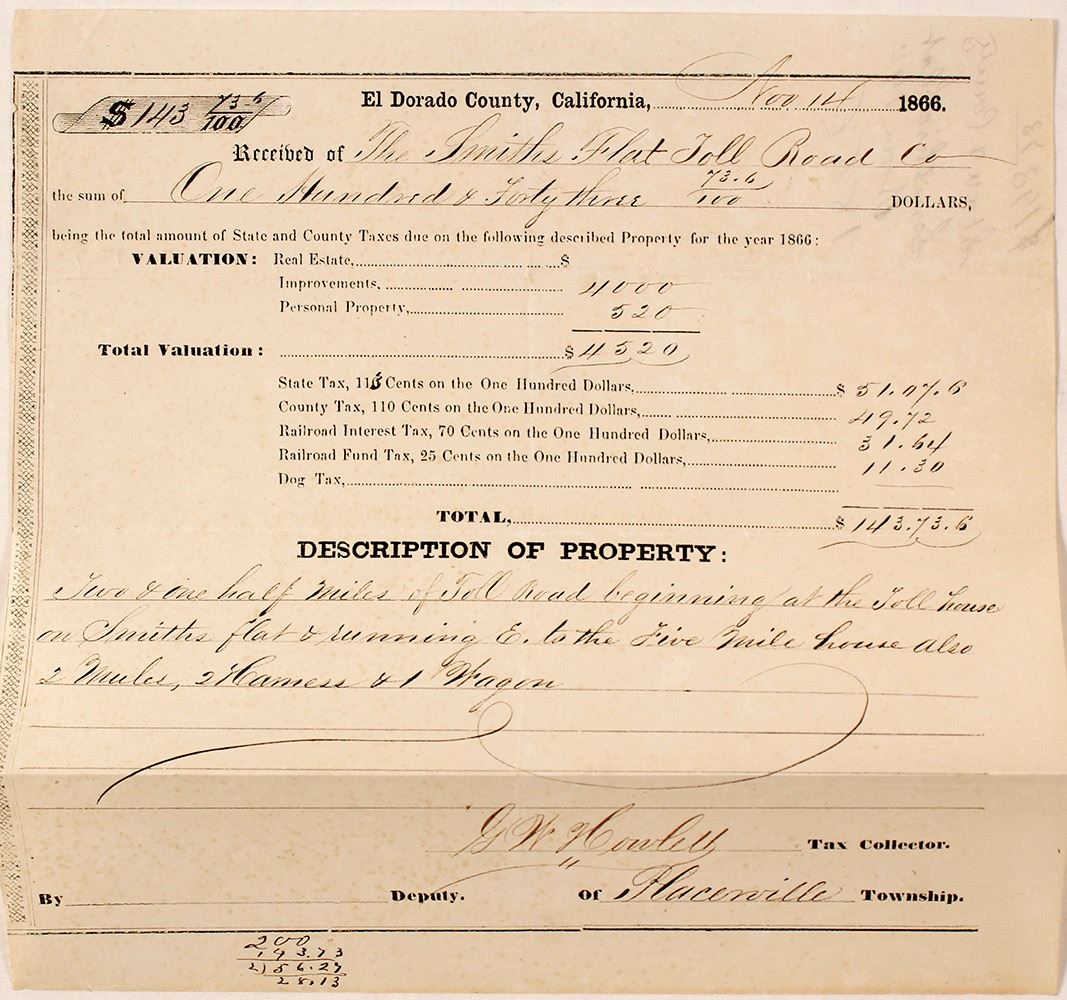 $ 143 73.6/100 El Dorado County, California, Nov 14 1866.
Received of The Smiths Flat Toll Road Co
the sum of One Hundred & Forty three 73.6/100 DOLLARS,
being the total amount of State and County Taxes due on the following described Property for the year 1866:
VALUATION: Real Estate, $
Improvements, 4000
Personal Property, 520
Total Valuation: $ 4520
State Tax, 113 Cents on the One Hundred Dollars, $ 51.07.6
County Tax, 110 Cents on the One Hundred Dollars, 49.72
Railroad Interest Tax, 70 Cents on the One Hundred Dollars, 31.64
Railroad Fund Tax, 25 Cents on the One Hundred Dollars, 11.30
Dog Tax,
TOTAL, $ 143.73.6
DESCRIPTION OF PROPERTY:
Two & one half Miles of Toll Road beginning at the Toll house
on Smiths flat & running E. to the Five Mile house also
2 Mules, 2 Harness & 1 Wagon
G W Howlett Tax Collector.
By Deputy. Of Placerville Township.
200
143.73
2) 56.27
28.13